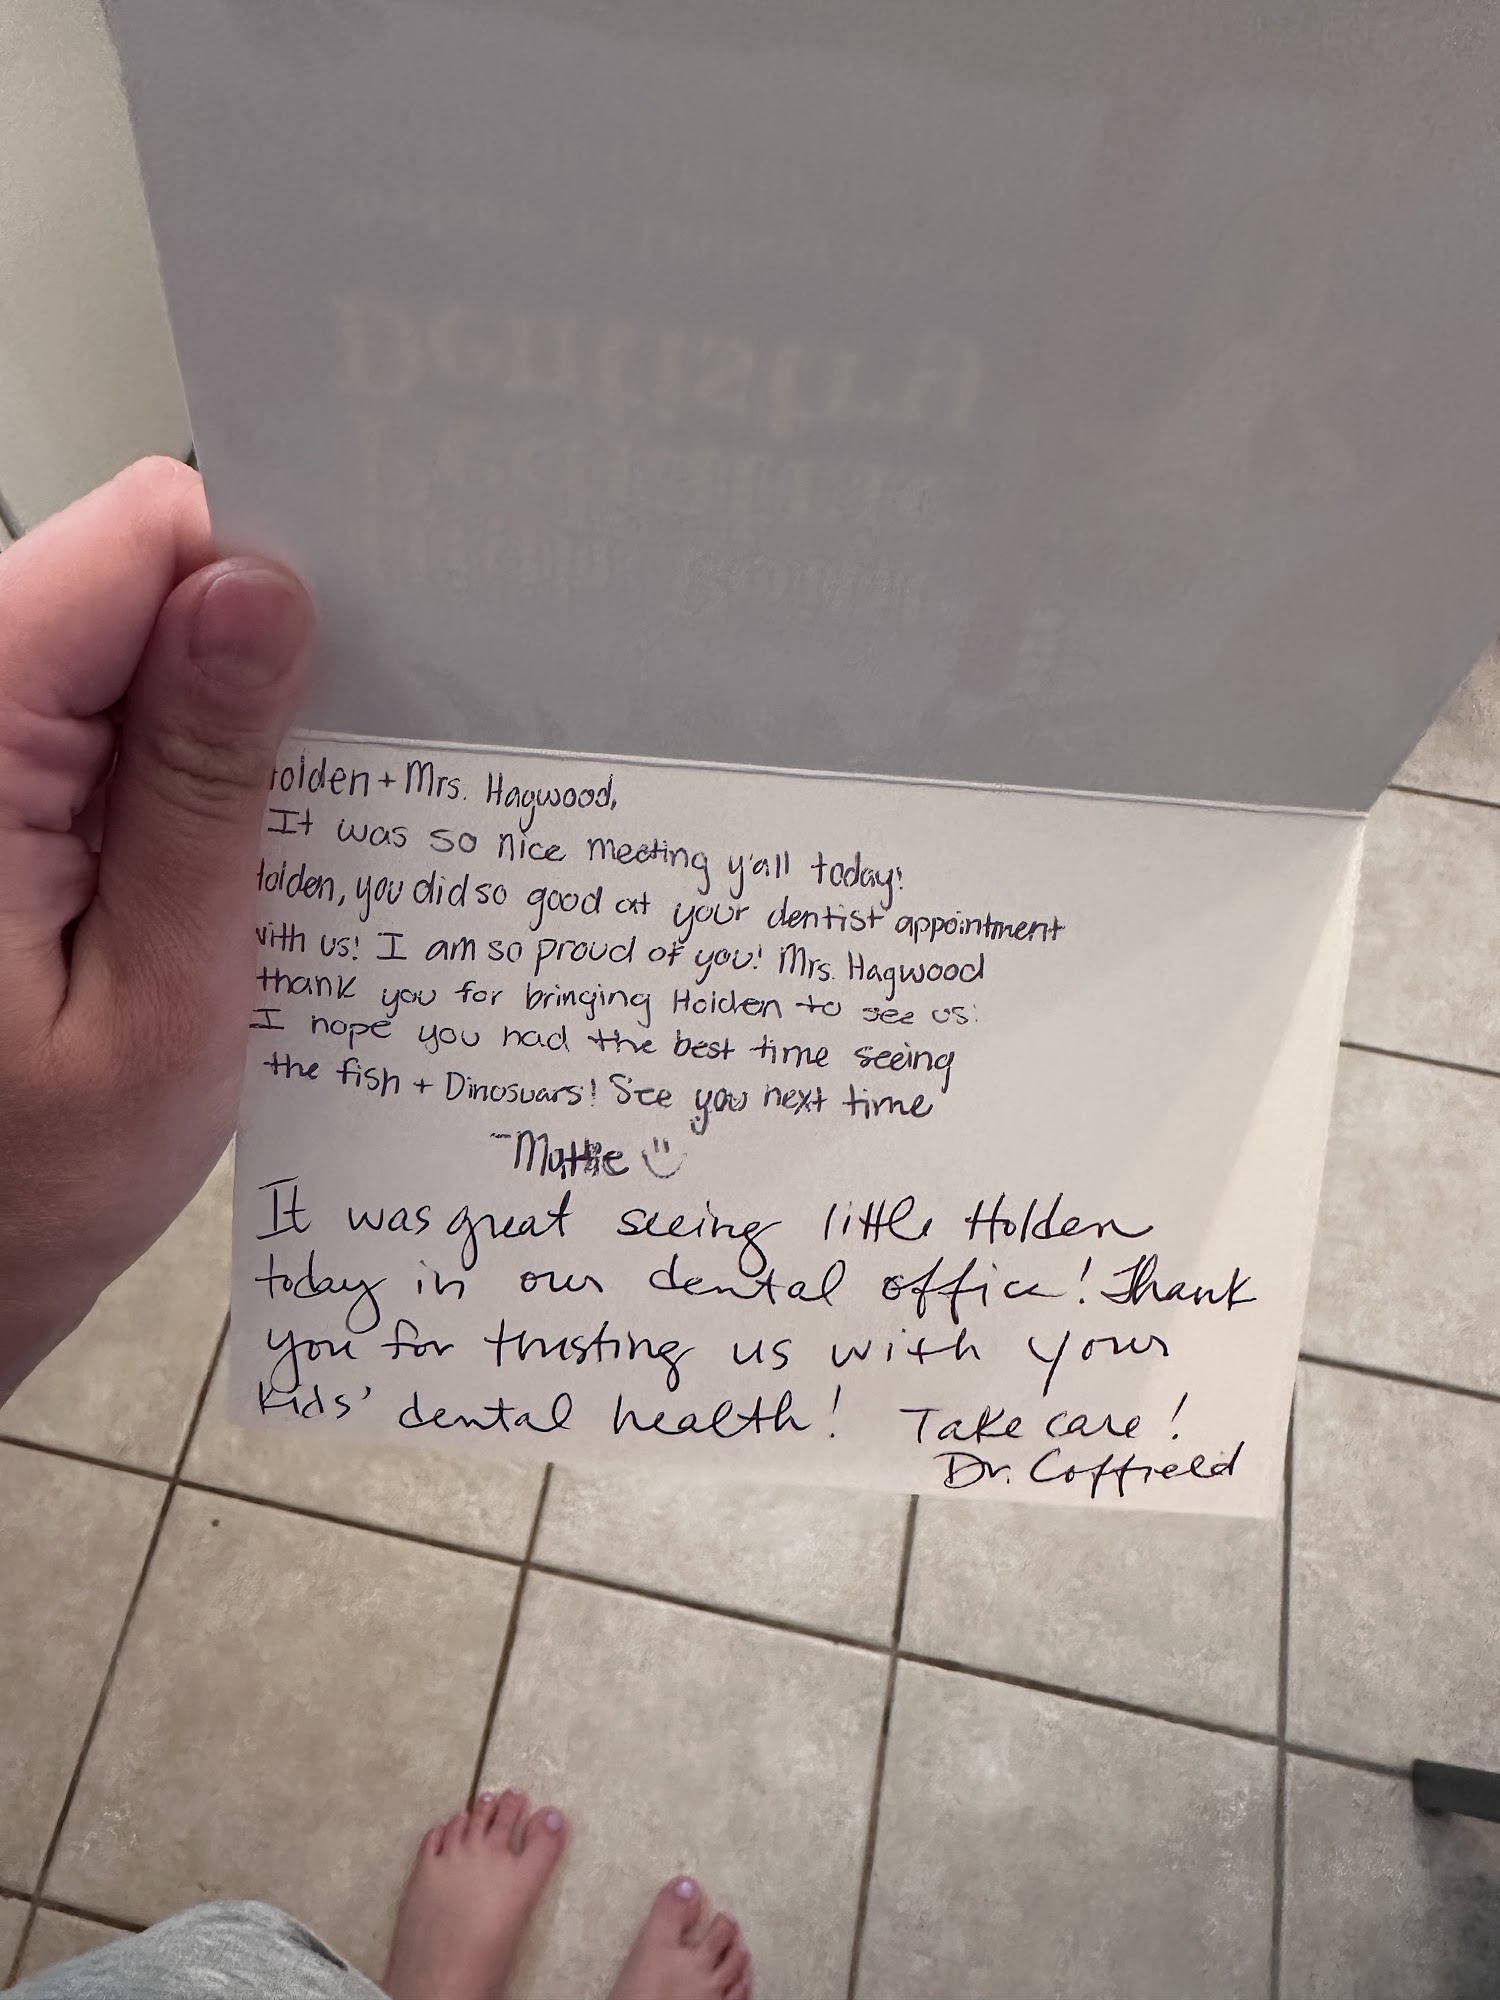 Holden + Mrs. Hagwood,
It was so nice meeting y'all today!
Holden, you did so good at your dentist appointment
with us! I am so proud of you! Mrs. Hagwood
thank you for bringing Holden to see us!
I hope you had the best time seeing
the fish + Dinosuars! See you next time
~Mattie
It was great seeing little Holden
today in our dental office! Thank
you for trusting us with your
kids' dental health! Take care!
Dr. Coffield